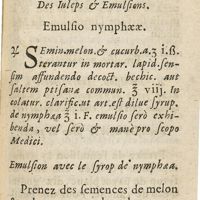 Des Iuleps & Emulsions.
Emulsio nymphææ.
℞ SEmin.melon.& cucurb.a.ʒ i.ß.
terantur in mortar. lapid.sen-
sim affundendo decoct. bechic. aut
saltem ptisanæ commun. ℥ viij. In
colatur. clarific.ut art.est dilue syrup.
de nymphæa ℥ i. F. emulsio serò exhi-
benda, vel serò & manè pro scopo
Medici.
Emulsion avec le syrop de nymphæa.
Prenez des semences de melon